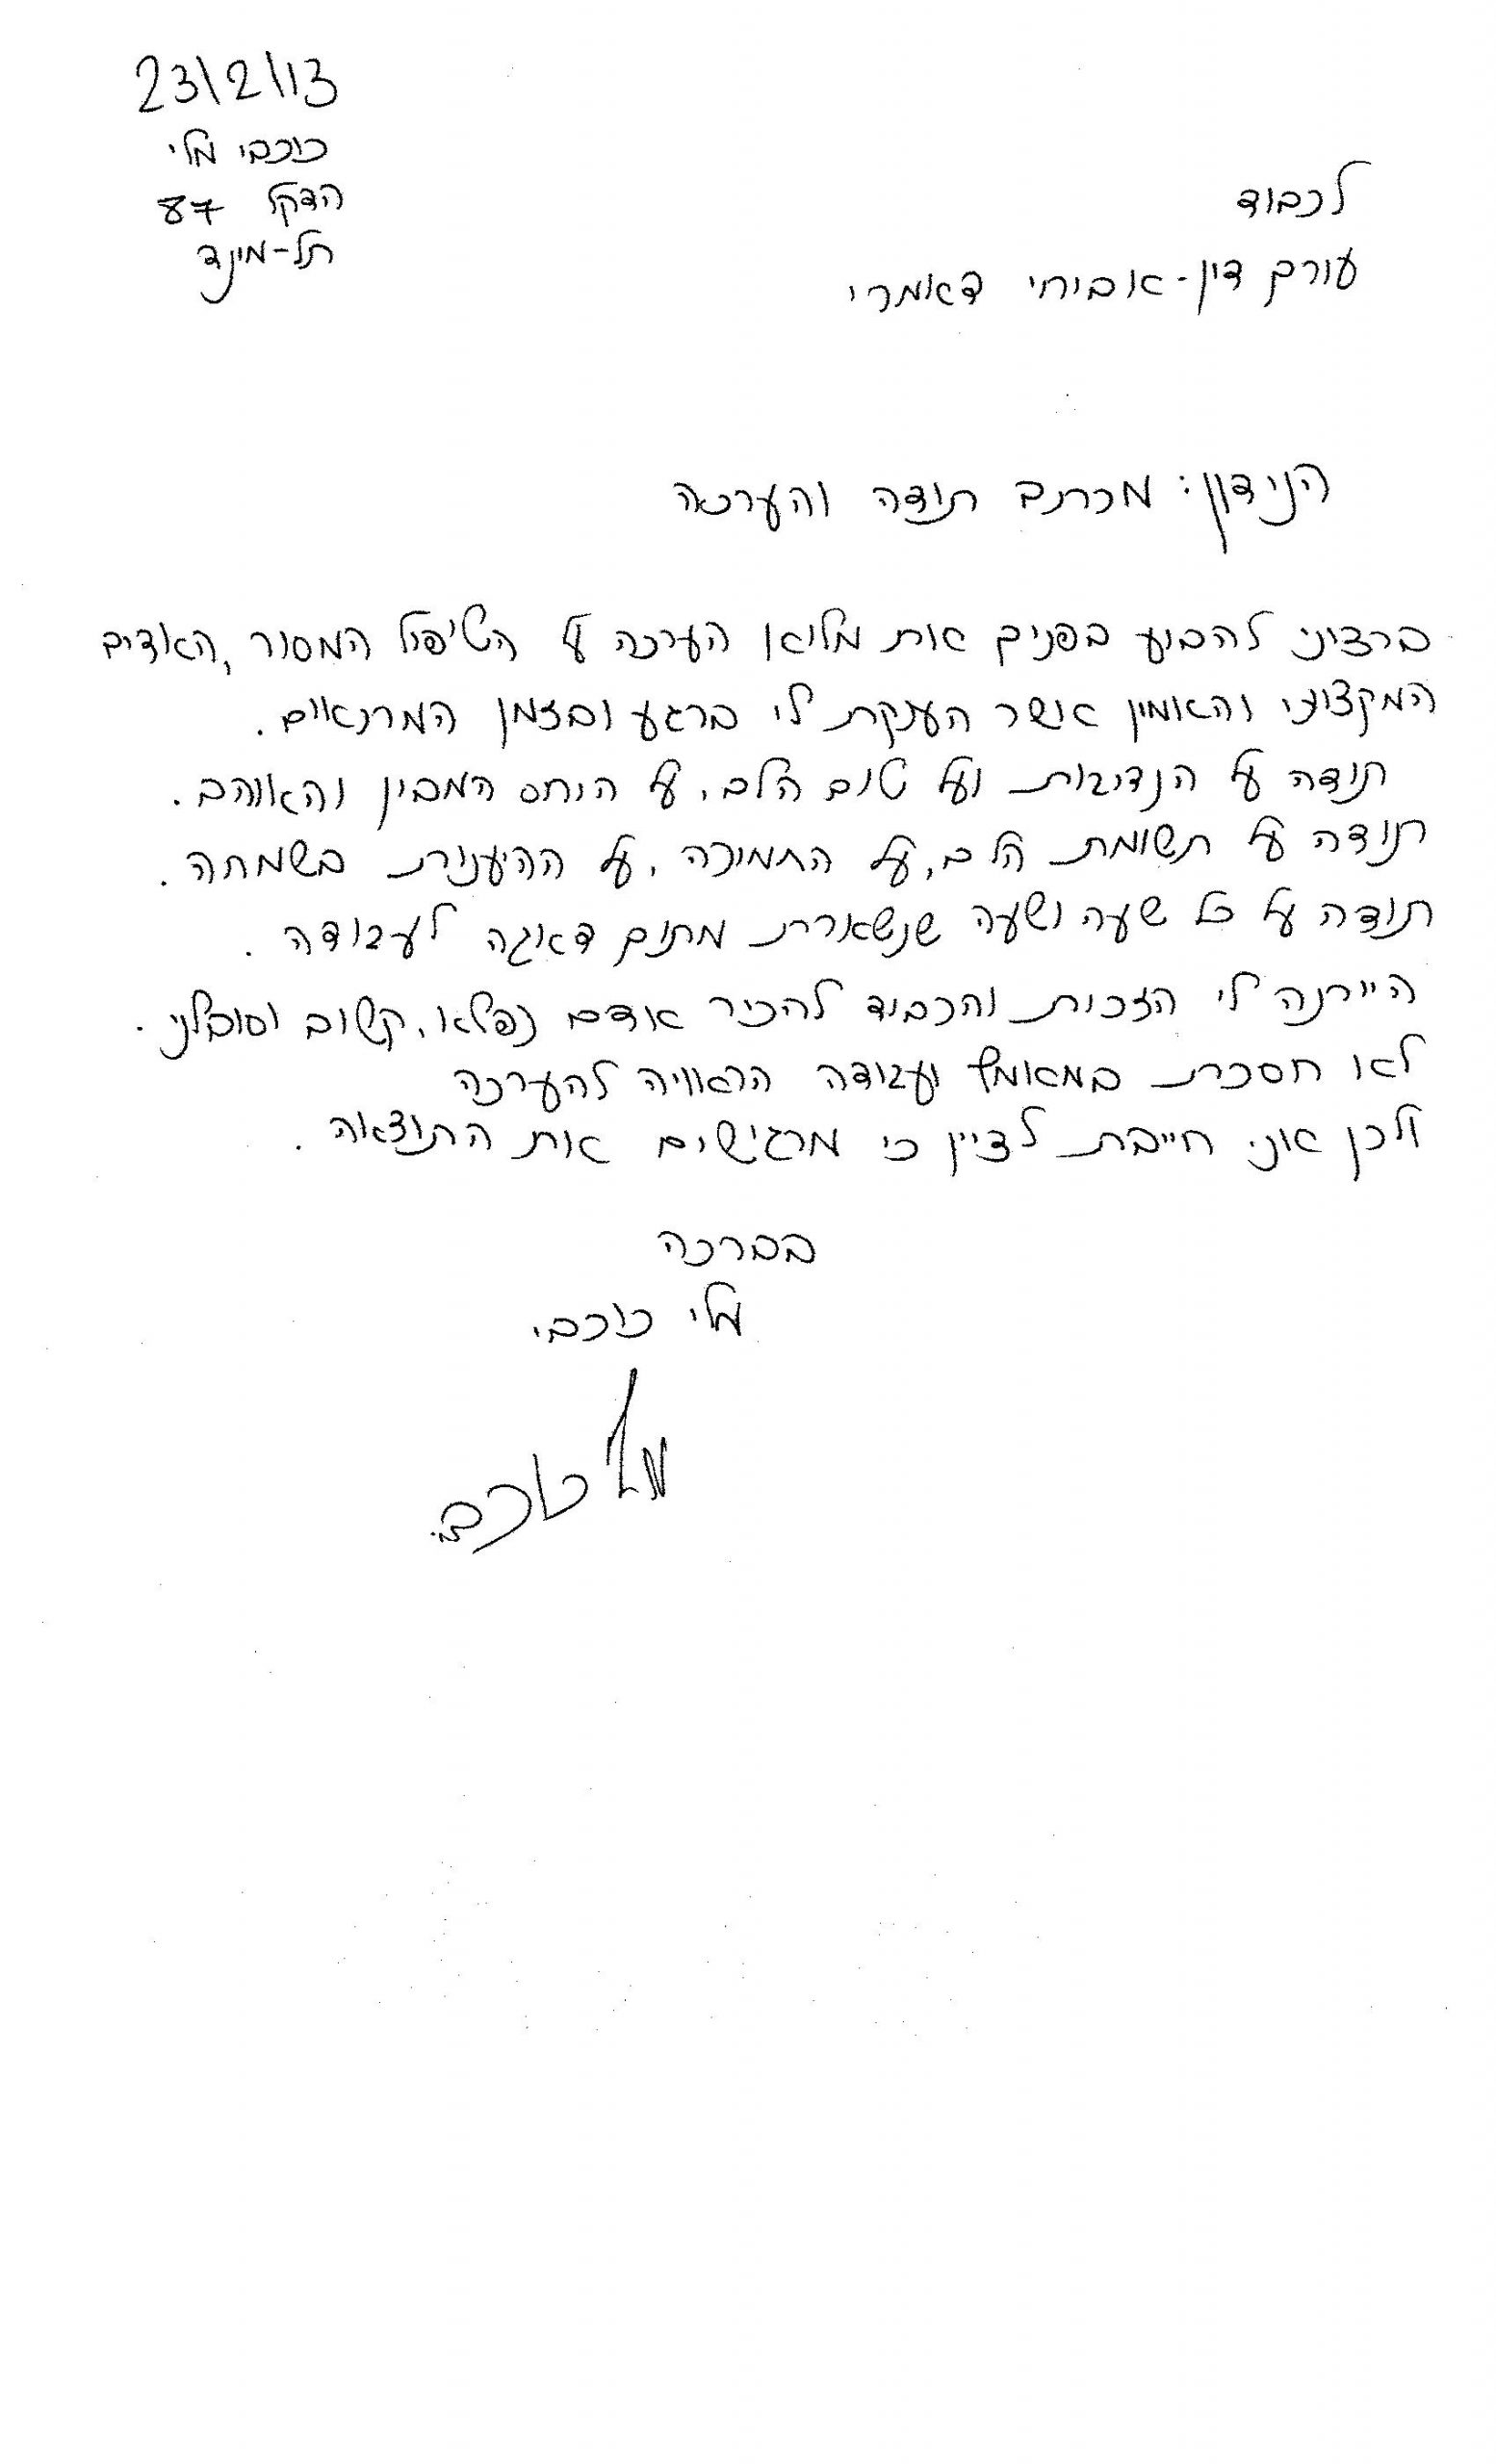 23/2/13
כוכבי מלי
הדקל 87
תל-מונד
לכבוד
עורך דין - אביחי דאמרי
הנידון: מכתב תודה והערכה
ברצוני להביע בפניך את מלוא הערכה על הטיפול המסור, האדיב
המקצועי והאמין אשר הענקת לי ברגע ובזמן המתאים.
תודה על הנדיבות ועל טוב הלב, על היחס המבין והאוהב.
תודה על תשומת הלב, על התמיכה, על ההיענות בשמחה.
תודה על כל שעה ושעה שנשארת מתוך דאגה לעבודה.
הייתה לי הזכות והכבוד להכיר אדם נפלא, קשוב וסובלני.
לא חסכת במאמץ ועבודה הראוייה להערכה
ולכן אני חייבת לציין כי מרגישים את התוצאה.
בברכה
מלי כוכבי
מלי כוכבי